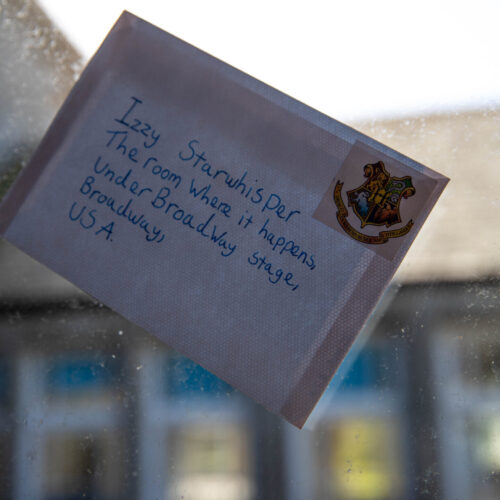 Izzy Starwhisper
The room where it happens,
Under BroadWay stage,
Broadway,
USA.